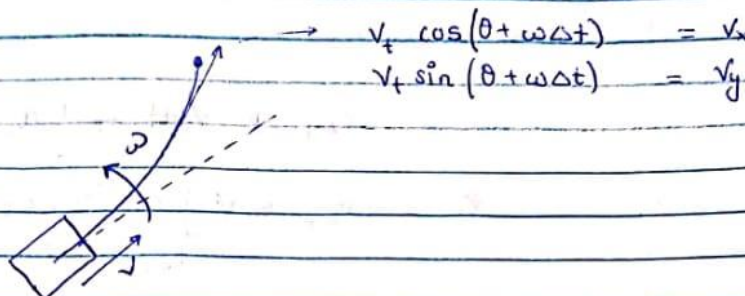 → V_t cos(θ + ωΔt) = Vx
V_t sin(θ + ωΔt) = Vy
ω
V